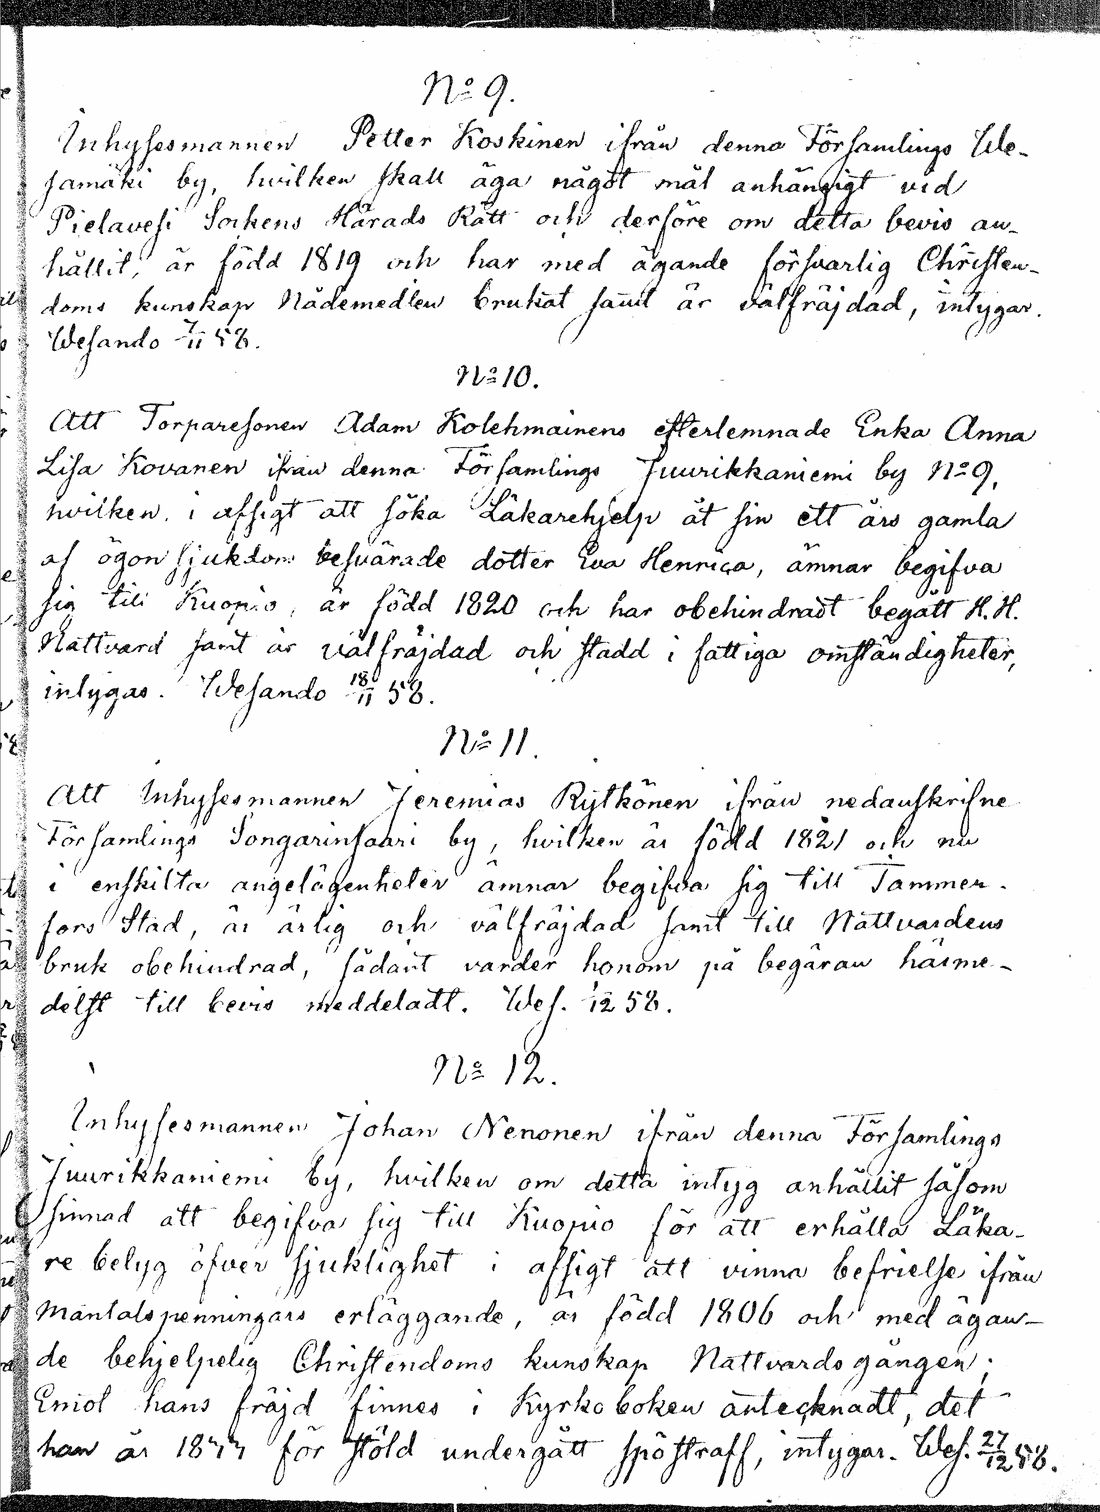 No 9.
Inhysesmannen Petter Koskinen ifrån denna Församlings We-
samäki by, hvilken skall äga något mål anhängigt vid
Pielavesi Sockens Härads Rätt och derföre om detta bevis an-
hållit, är född 1819 och har med ägande försvarlig Christen-
doms kunskap Nådemedlen brukat samt är välfräjdad, intygar.
Wesando 7/11 58.
No 10.
Att Torparesonen Adam Kolehmainens efterlemnade Enka Anna
Lisa Kovanen ifrån denna Församlings Juurikkaniemi by No 9,
hvilken i afsigt att söka Läkarehjelp åt sin ett års gamla
af ögonsjukdom besvärade dotter Eva Henrica, ämnar begifva
sig till Kuopio, är född 1820 och har obehindradt begått H. H.
Nattvard samt är välfräjdad och stadd i fattiga omständigheter,
intygas. Wesando 18/11 58.
No 11.
Att Inhysesmannen Jeremias Rytkönen ifrån nedanskrifne
Församlings Songarinsaari by, hvilken är född 1821 och nu
i enskilta angelägenheter ämnar begifva sig till Tammer-
fors Stad, är ärlig och välfräjdad samt till Nattvardens
bruk obehindrad, sådant varder honom på begäran härme-
delst till bevis meddeladt. Wes. 1/12 58.
No 12.
Inhysesmannen Johan Nenonen ifrån denna Församlings
Juurikkaniemi by, hvilken om detta intyg anhållit såsom
sinnad att begifva sig till Kuopio för att erhålla Läka-
re betyg öfver sjuklighet i afsigt att vinna befrielse ifrån
Mantalspenningars erläggande, är född 1806 och med ägan-
de behjelpelig Christendoms kunskap Nattvardsgången;
Emot hans fräjd finnes i Kyrkoboken antecknadt, det
han år 1844 för stöld undergått spöstraff, intygar. Wes. 27/12 58.